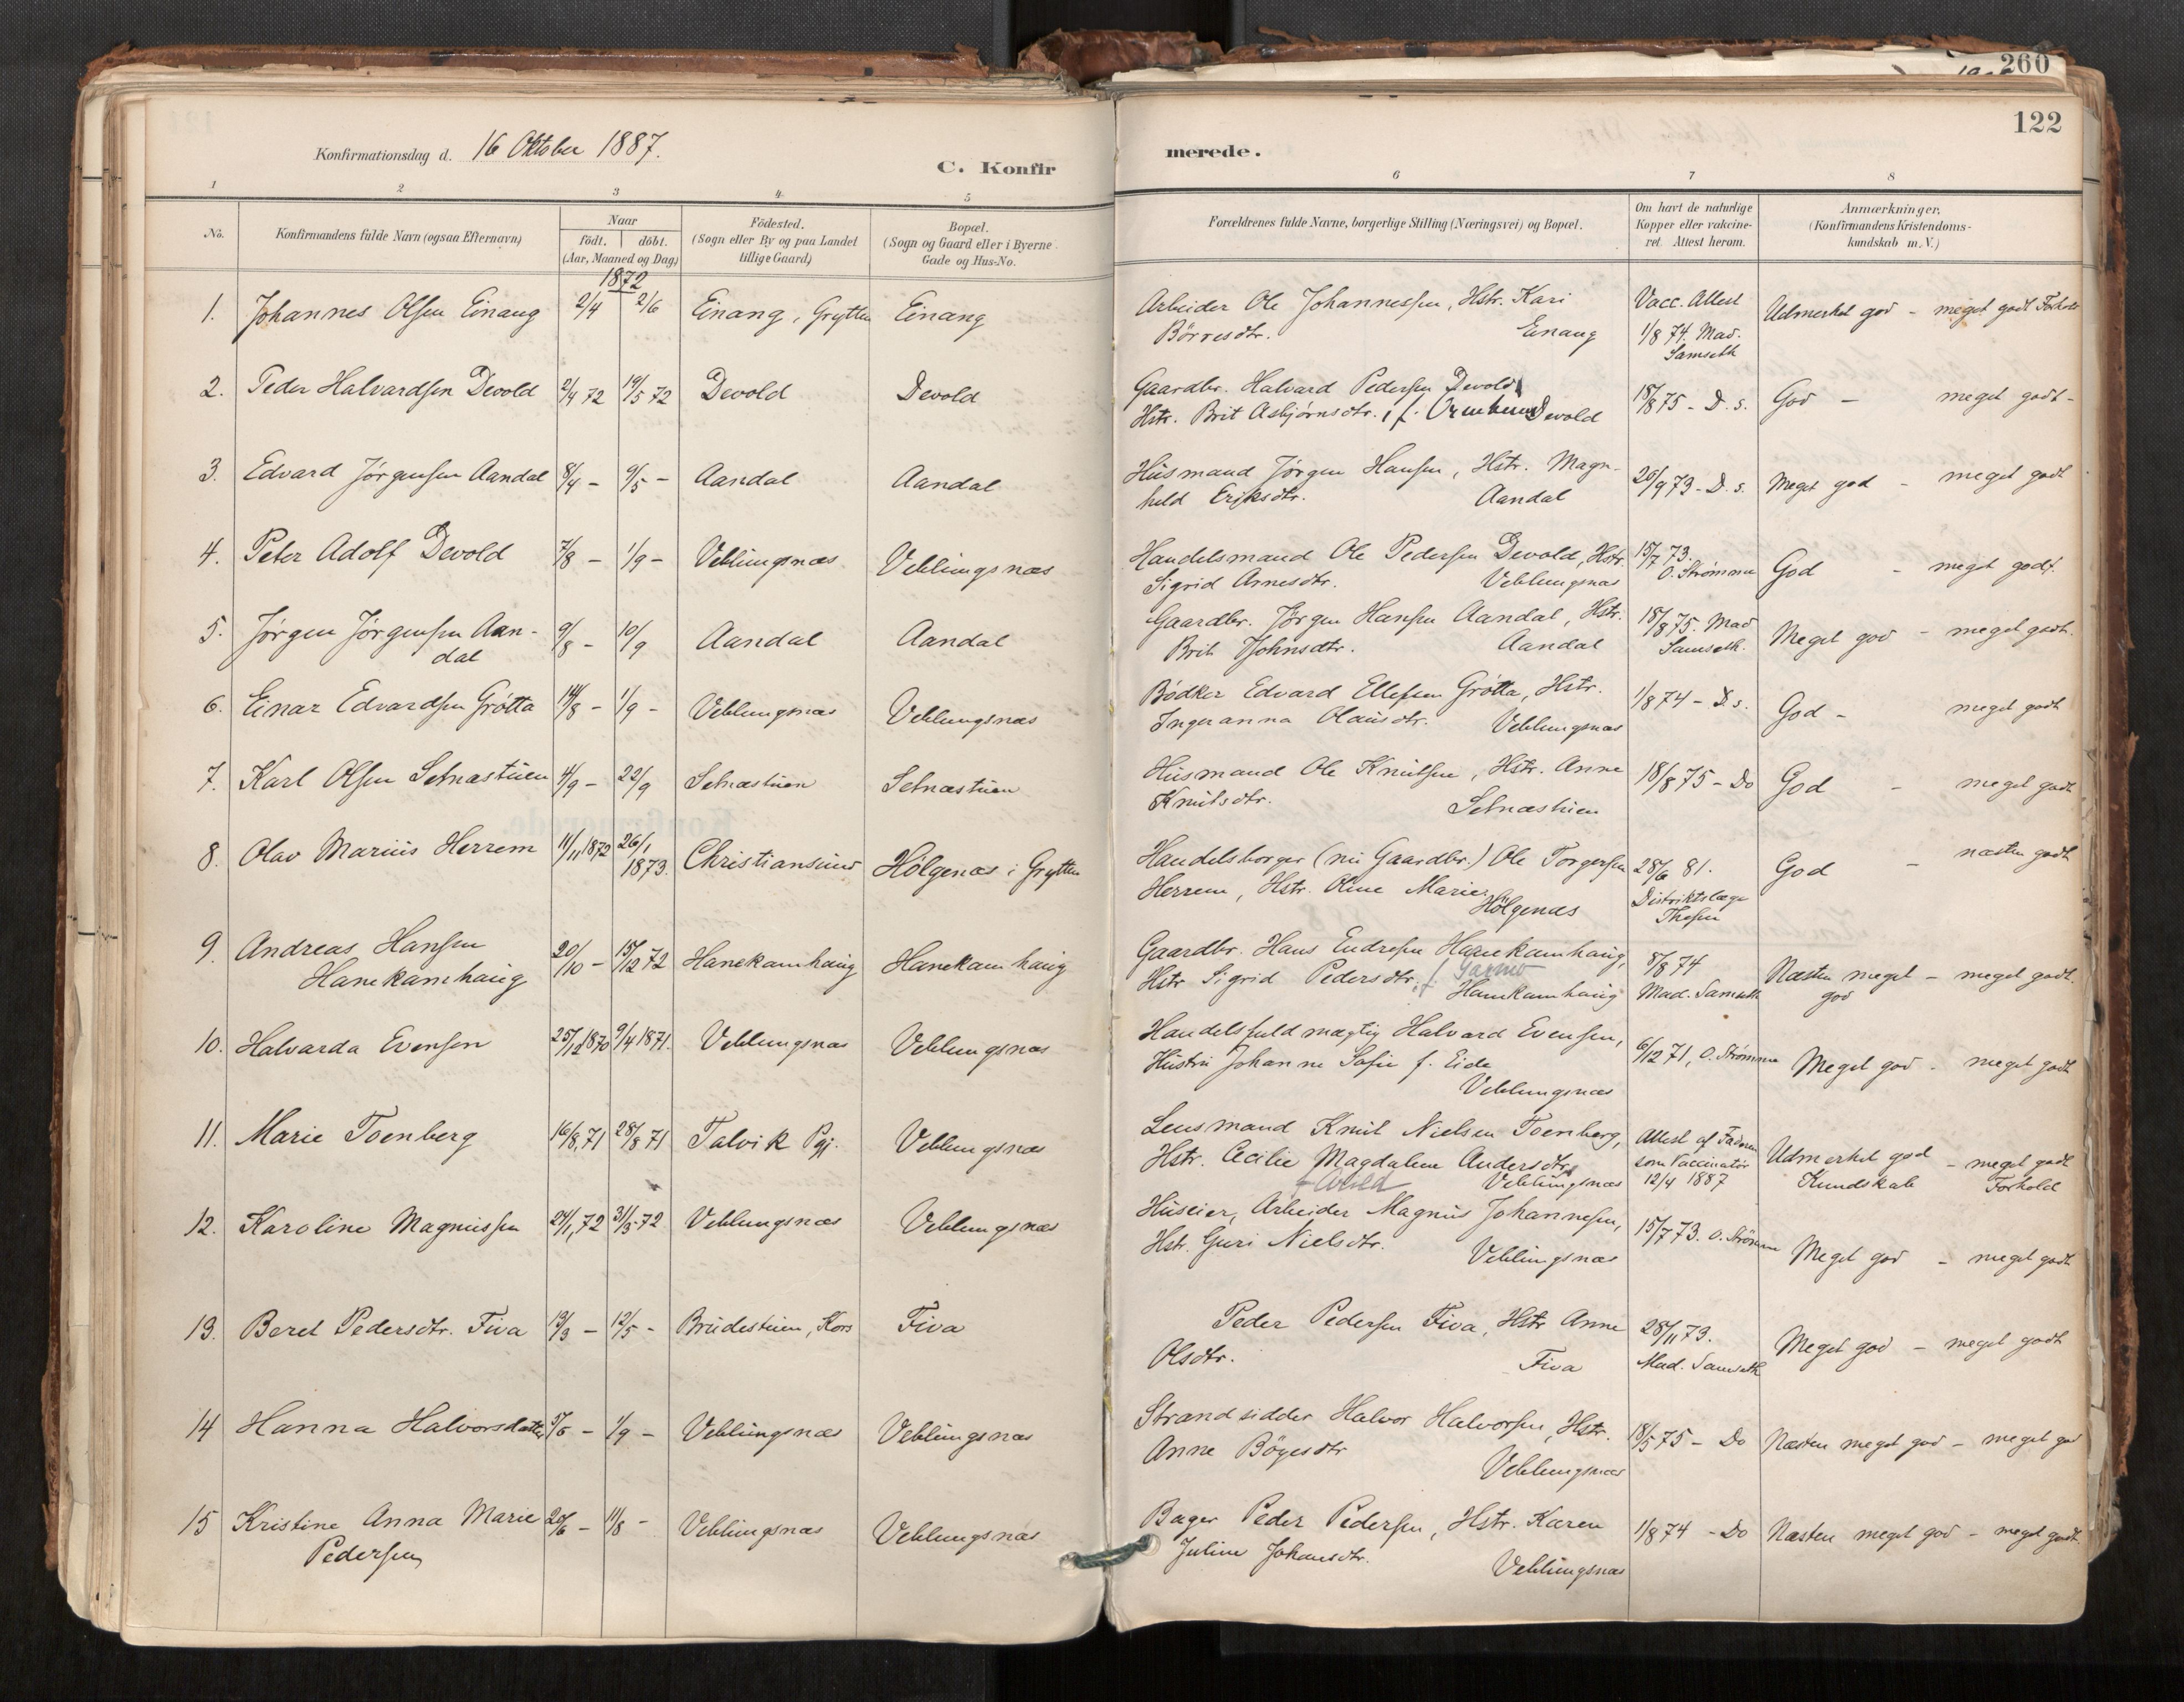 260
122
Konfirmationsdag d. 16 Oktober 1887.
C. Konfirmerede.
1 2 3 4 5 6 7 8
No.
Konfirmandens fulde Navn (ogsaa Efternavn)
Naar
födt. döbt.
(Aar, Maaned og Dag)
Födested.
(Sogn eller By og paa Landet
tillige Gaard)
Bopæl.
(Sogn og Gaard eller i Byerne
Gade og Hus-No.
Forældrenes fulde Navne, borgerlige Stilling (Næringsvei) og Bopæl.
Om havt de naturlige
Kopper eller vakcine-
ret. Attest herom.
Anmærkninger.
(Konfirmandens Kristendoms-
kundskab m. V.)
1872
1. Johannes Olsen Einang 2/4 2/6 Einang, Grytten Einang Arbeider Ole Johannessen, Hstr. Kari Vacc. Attest Udmerket god - meget godt Forhold
Börresdtr. Einang 1/8 74. Mad.
Samseth
2. Peder Halvardsen Devold 2/4 72 19/5 72 Devold Devold Gaardbr. Halvard Pedersen Devold 18/8 75 - D. s. God - meget godt -
Hstr. Brit Asbjørnsdtr. f. Devold
3. Edvard Jörgensen Aandal 8/4 - 9/5 - Aandal Aandal Husmand Jörgen Hansen, Hstr. Magn- 25/9 73 - D. s. Meget god - meget godt
hild Eriksdtr. Aandal
4. Peter Adolf Devold 7/8 - 1/9 - Veblungsnæs Veblungsnæs Handelsmand Ole Pedersen Devold, Hstr. 15/7 73. God - meget godt.
Sigrid Arnesdtr. Veblungsnæs O. Strömme
5. Jörgen Jörgensen Aan- 9/8 - 10/9 Aandal Aandal Gaardbr. Jörgen Hansen Aandal, Hstr. 18/8 75. Mad Meget god - meget godt.
dal Brit Johnsdtr. Aandal Samseth.
6. Einar Edvardsen Grötta 14/8 - 1/9 - Veblungsnæs Veblungsnæs Bödker Edvard Ellefsen Grötta, Hstr. 1/8 74 - D. s. God - meget godt
Ingeranna Olausdtr. Veblungsnæs
7. Karl Olsen Setnæstuen 4/9 - 22/9 Setnæstuen Setnæstuen Husmand Ole Knutsen, Hstr. Anne 18/8 75 - Do God - meget godt
Knutsdtr. Setnæstuen
8. Olav Marius Herrem 11/11 1872 26/1 1873. Christiansund Hölgenæs i Grytten Handelsborger (nu Gaardbr.) Ole Torgersen 28/6 81. God - næsten godt
Herrem, Hstr. Oline Marie Hölgenæs Distriktslæge
Thesen
9. Andreas Hansen 20/10 - 15/12 72 Hanekamhaug Hanekamhaug Gaardbr. Hans Endresen Hanekamhaug, 8/8 74 Næsten meget - meget godt.
Hanekamhaug Hstr Sigrid Pedersdtr. f. Garmo Hanekamhaug Mad. Samseth god
10. Halvarda Evensen 25/12 1870 9/4 1871. Veblungsnæs Veblungsnæs Handelsfuldmægtig Halvard Evensen, 6/12 71, O. Strömme Meget god - meget godt
Hustru Johanne Sofie f. Eide
Veblungsnæs
11. Marie Toenberg 16/8 71 28/8 71 Talvik Pgj. Veblungsnæs Lensmand Knut Nielsen Toenberg, Attest af Faderen Udmerket god - meget godt
Hstr. Cecilie Magdalene Andersdtr. som Vaccinatör Kundskab Forhold
Veblungsnæs 12/4 1887
12. Karoline Magnussen 24/1 72 31/3 72 Veblungsnæs Veblungsnæs Huseier, Arbeider Magnus Johannesen, 15/7 73. O. Strömme Meget god - meget godt
Hstr. Guri Nielsdtr. Veblungsnæs
13. Beret Pedersdtr. Fiva 13/3 - 12/5 - Brudestuen, Kors Fiva Peder Pedersen Fiva, Hstr Anne 28/11 73. Meget god - meget godt
Olsdtr. Fiva Mad. Samseth
14 Hanna Halvorsdatter 5/6 - 1/9 - Veblungsnæs Veblungsnæs Strandsidder Halvor Halvorsen, Hstr. 18/5 75 - Do Næsten meget god - meget go
Anne Böyesdtr Veblungsnæs
15 Kristine Anna Marie 20/6 - 11/8 - Veblungsnæs Veblungsnæs Bager Peder Pedersen, Hstr. Karen 1/8 74 - Do Næsten meget god - meget godt.
Pedersen Juline Johansdtr. Veblungsnæs